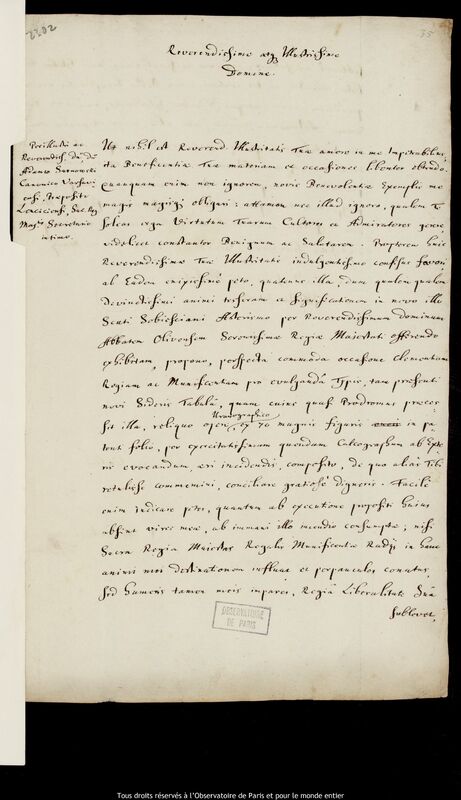 2202
35
Reverendissime atq Illustrissime
Domine.
Perillustri ac
Reverendiss. dn. dn
Adamo Sarnowski
Canonico Varsavi
ensi, Praeposito
Lanciciensi, Sac. Reg
Majtis Secretario
intimo.
Ut nihil est Reverend. Illustritatis Tuae amore in me Imperabilius,
ita Beneficentiae Tuae materiam et occasiones libenter obtendo.
quanquam enim non ignorem, novis Benevolentiae Exemplis me
magis magisq obligari: attamen nec illud ignoro, qualem T
soleas erga Virtutum Tuarum Cultores et Admiratores gerere
videlicet constanter Benignum ac Salutarem. Propterea huic
Reverendissimae Tuae Illustritati indulgentissimo confisus favori
ab Eadem enixissime peto, quatenus illa, dum qualemqualem
Devinctissimi animi tesseram et significationem in novo illo
Scuti Sobiesciani Asterismo per Reverendissimum Dominum
Abbatem Olivensem Serenissimae Regiae Maiestati offerendo
exhibitam, propono, perspecta commoda occasione Clementiam
Regiam ac Munificentiam pro evulganda Typis, tam praesenti
novi Sideris Tabula, quam cuius quasi Prodromus praeces
sit illa, reliquo opere Uranographico 70 magnis figuris in pa
tenti folio, per exercitatissimum quendam Calcographum ab Exte
ris evocandum, aeri incidendis, composito, de quo alias Tibi
retulisse commemini, conciliare gratiose digneris. Facile
enim iudicare potes, quantum ab executione propositi huius
absint vires meae, ab immani illo incendio consumptae; nisi
Sacra Regia Maiestas Regalis Munificentiae Radijs in hanc
animi mei destinationem influat et perpauculos conatus,
sed humeris tamen meis impares, Regia Liberalitate Sua
sublevet,
OBSERVATOIRE
DE PARIS
Tous droits réservés à l'Observatoire de Paris et pour le monde entier